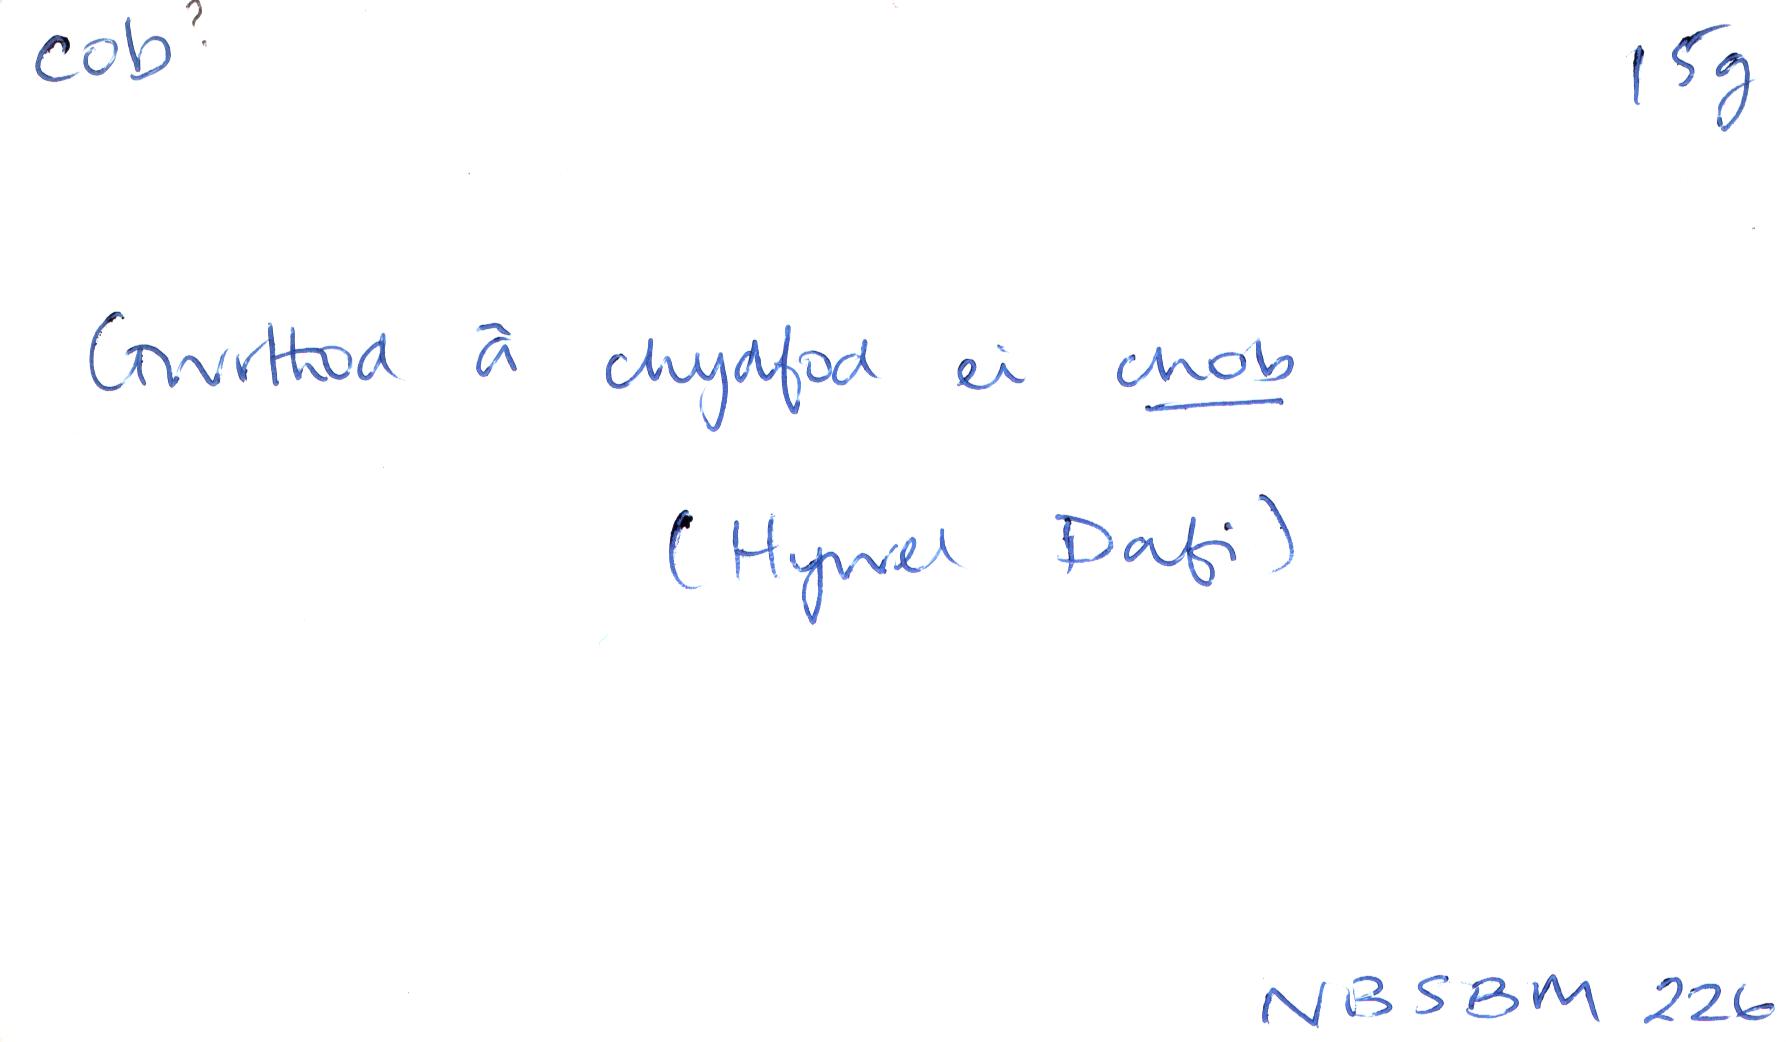 cob? 15g
Gwrthod â chydfod ei chob
(Hywel Dafi)
NBSBM 226